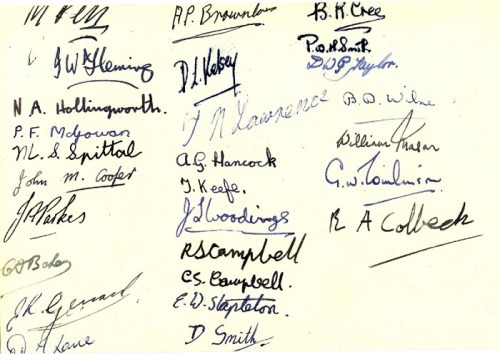 A.P. Brownlow
B. K. Cree
P.O.R. Smith.
J W Fleming
D. L. Kelsey
D W P Taylor.
N A. Hollingworth.
J N Lawrence
B. D. Wilne
P. F. McGowan
William
N.L. S Spittal
A.G. Hancock
G.W. Tomlinson
John M. Cooper
J. Keefe.
J A Parkes
J L Woodings
R A Colbeck
R S Campbell
C.S. Campbell.
E. W. Stapleton.
D A Lane
D Smith.